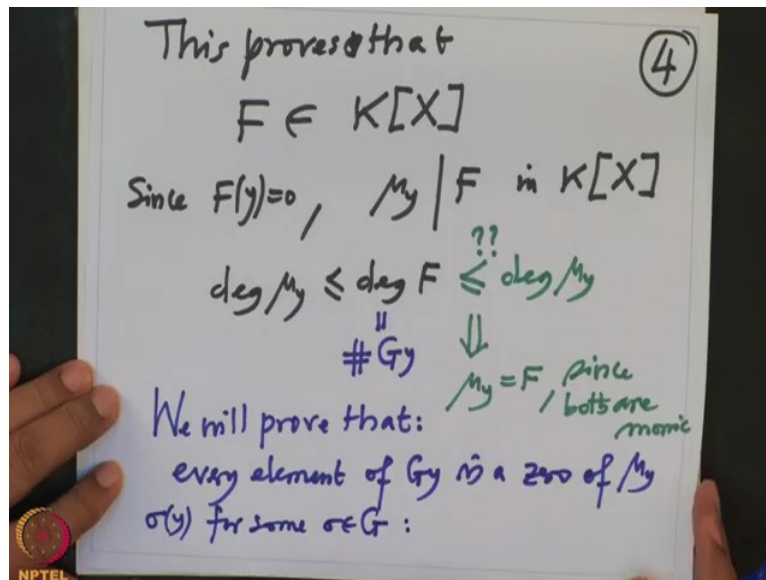 This proves that
④
F ∈ K[X]
Since F(y)=0, μy | F in K[X]
??
deg μy ≤ deg F ≤ deg μy
॥ ⇓
#Gy
μy = F, since
both are
monic
We will prove that:
every element of Gy is a zero of μy
σ(y) for some σ∈G :
NPTEL